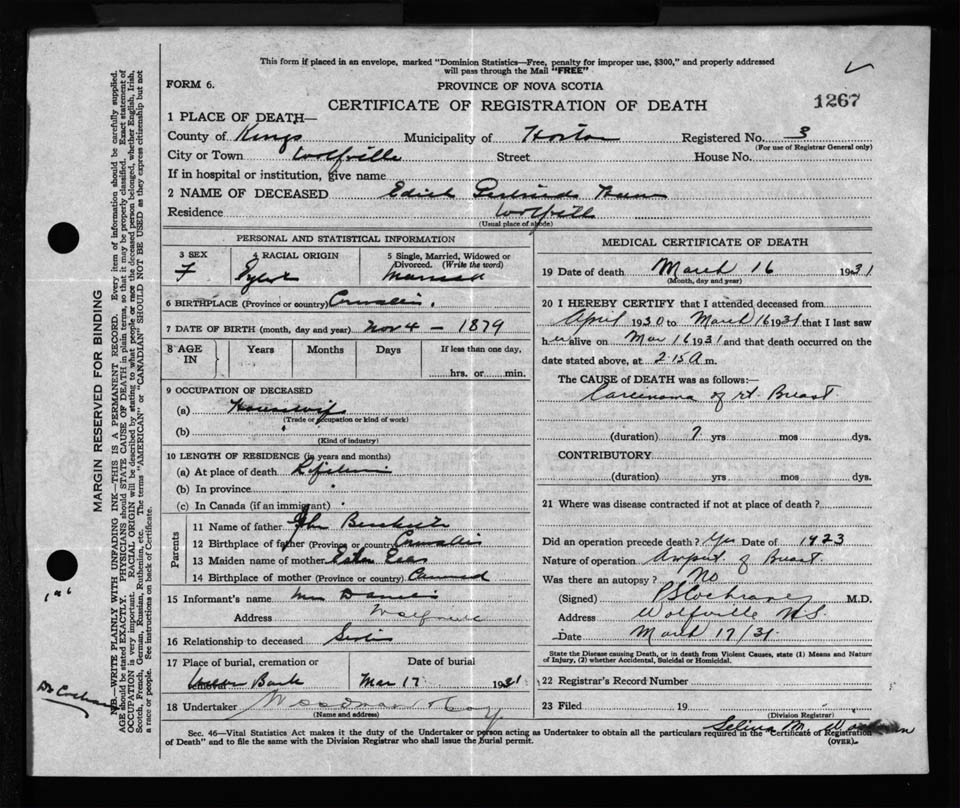 This form if placed in an envelope, marked "Dominion Statistics—Free, penalty for improper use, $300," and properly addressed
will pass through the Mail "FREE"
FORM 6.
PROVINCE OF NOVA SCOTIA
CERTIFICATE OF REGISTRATION OF DEATH
1267
1 PLACE OF DEATH—
County of Kings Municipality of Horton Registered No. 3
(For use of Registrar General only)
City or Town Wolfville Street House No.
If in hospital or institution, give name
2 NAME OF DECEASED Edith Gertrude
Residence Wolfville
(Usual place of abode)
PERSONAL AND STATISTICAL INFORMATION
3 SEX F
4 RACIAL ORIGIN
5 Single, Married, Widowed or Divorced. (Write the word) Married
6 BIRTHPLACE (Province or country) Cornwallis.
7 DATE OF BIRTH (month, day and year) Nov 4 – 1879
8 AGE IN Years Months Days If less than one day, hrs. or min.
9 OCCUPATION OF DECEASED
(a) Housewife
(Trade or occupation or kind of work)
(b)
(Kind of industry)
10 LENGTH OF RESIDENCE (in years and months)
(a) At place of death Lifetime
(b) In province
(c) In Canada (if an immigrant)
Parents
11 Name of father John
12 Birthplace of father (Province or country) Cornwallis
13 Maiden name of mother
14 Birthplace of mother (Province or country)
15 Informant's name Mrs
Address Wolfville
16 Relationship to deceased Sister
17 Place of burial, cremation or removal
Date of burial Mar 17 1931
18 Undertaker Woodman
(Name and address)
MEDICAL CERTIFICATE OF DEATH
19 Date of death March 16 1931
(Month, day and year)
20 I HEREBY CERTIFY that I attended deceased from
April 1930 to March 16 1931 that I last saw
her alive on Mar 16 1931 and that death occurred on the
date stated above, at 2.15 A m.
The CAUSE of DEATH was as follows:
Carcinoma of rt. Breast
(duration) 7 yrs mos dys.
CONTRIBUTORY
(duration) yrs mos dys.
21 Where was disease contracted if not at place of death?
Did an operation precede death? Yes Date of 1923
Nature of operation Amput of Breast
Was there an autopsy? No
(Signed) Cochrane M.D.
Address Wolfville N.S.
Date March 17/31.
State the Disease causing Death, or in death from Violent Causes, state (1) Means and Nature
of Injury, (2) whether Accidental, Suicidal or Homicidal.
22 Registrar's Record Number
23 Filed 19
(Division Registrar)
Selina M.
Sec. 46—Vital Statistics Act makes it the duty of the Undertaker or person acting as Undertaker to obtain all the particulars required in the "Certificate of Registration
of Death" and to file the same with the Division Registrar who shall issue the burial permit.
(OVER)
MARGIN RESERVED FOR BINDING
N.B.—WRITE PLAINLY WITH UNFADING INK—THIS IS A PERMANENT RECORD. Every item of information should be carefully supplied.
AGE should be stated EXACTLY. PHYSICIANS should STATE CAUSE OF DEATH in plain terms, so that it may be properly classified. Exact statement of
OCCUPATION is very important. RACIAL ORIGIN will be described by stating to what people or race the deceased person belonged, whether English, Irish,
Scotch, French, German, Russian, Ruthenian, etc. The terms "AMERICAN" or "CANADIAN" SHOULD NOT BE USED as they express citizenship but not
a race or people. See instructions on back of Certificate.